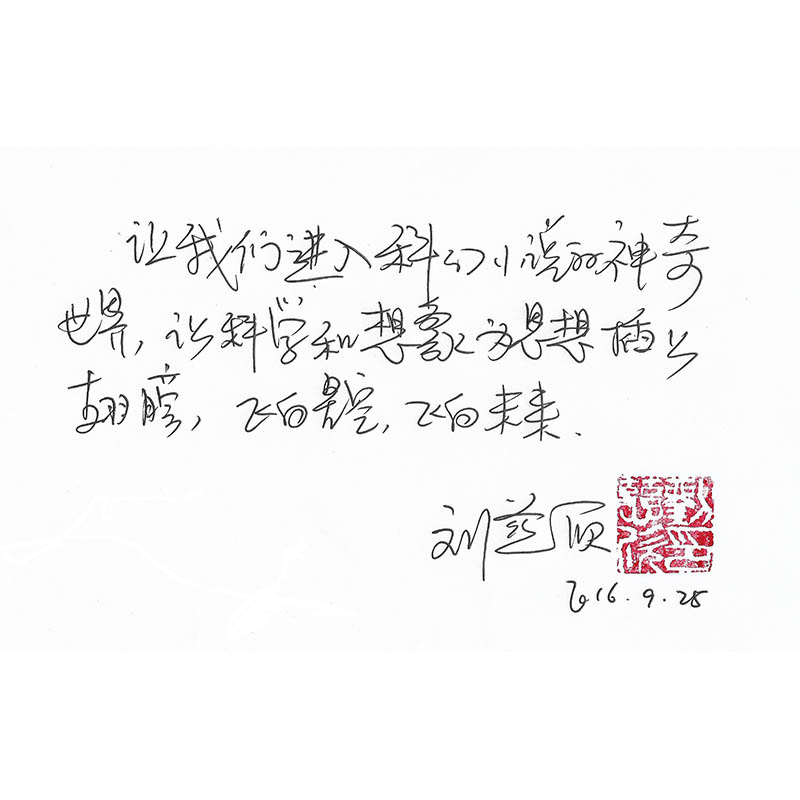 让我们进入科幻小说的神奇
世界,让科学和想象为思想插上
翅膀,飞向星空,飞向未来.
刘慈欣
2016.9.28